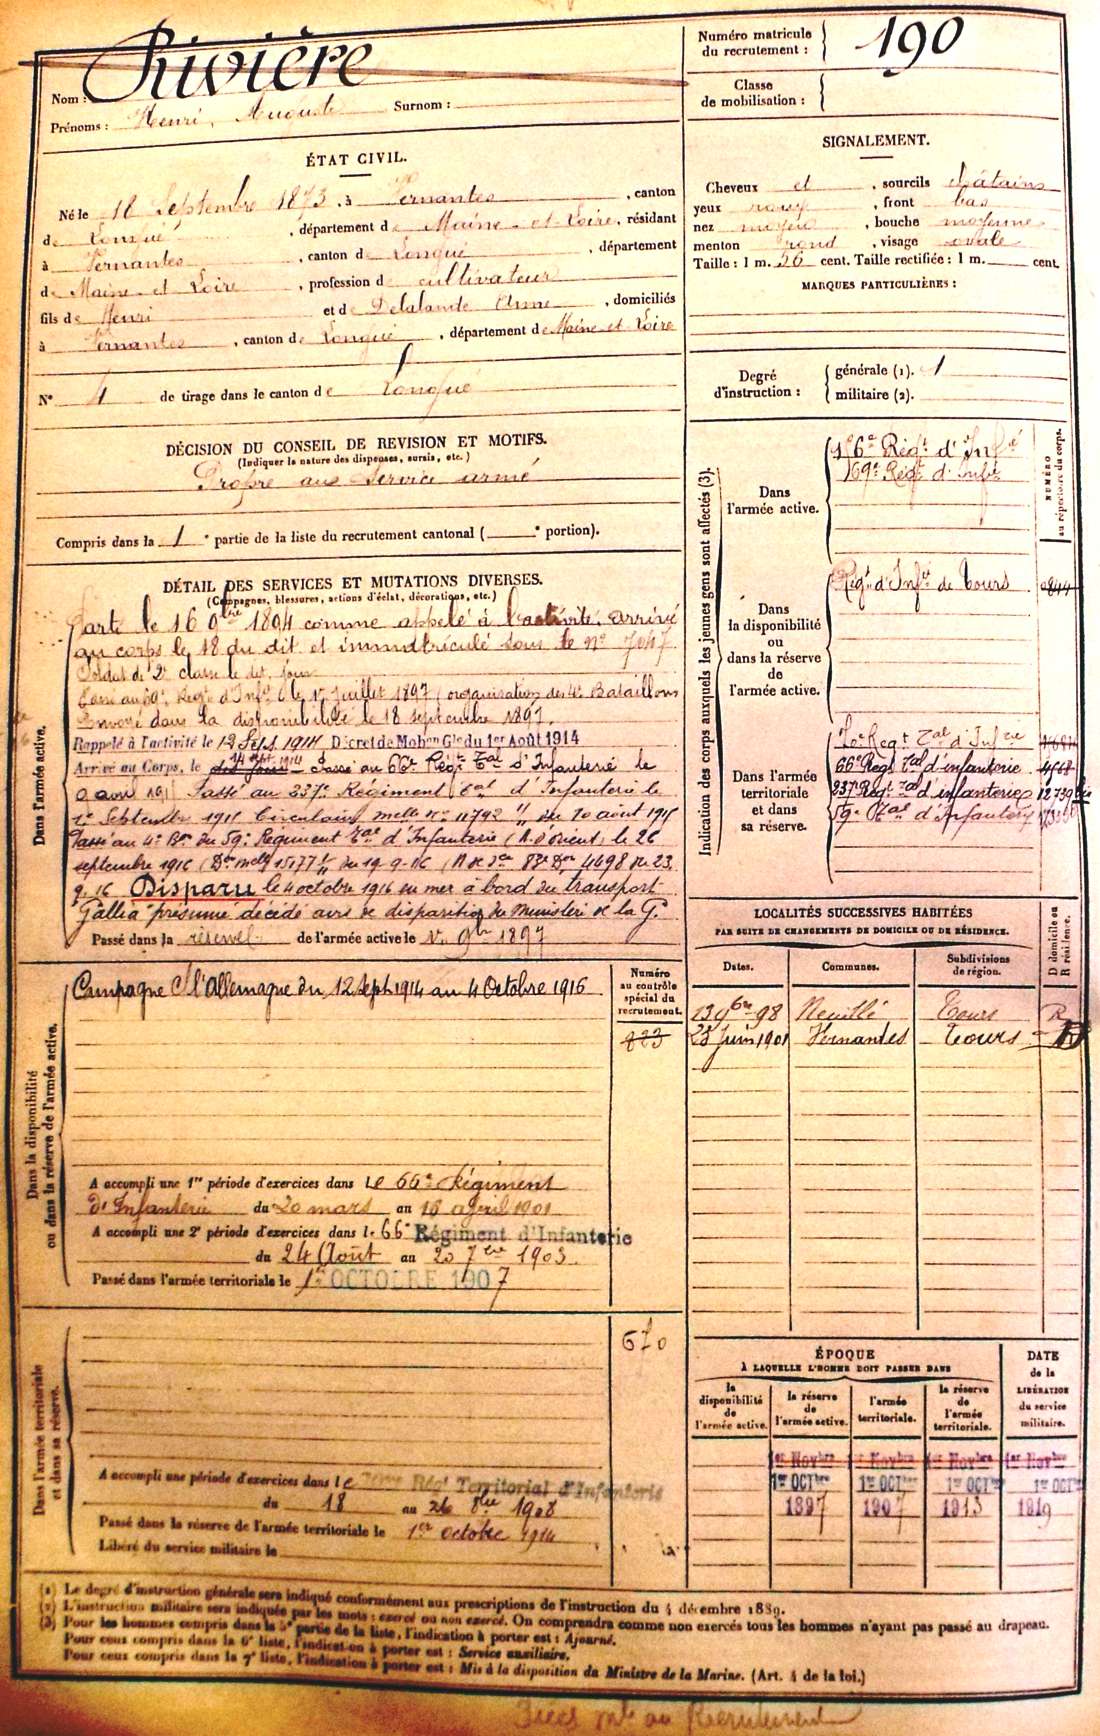 Numéro matricule du recrutement : 190
Classe de mobilisation :
Nom : Rivière
Prénoms : Henri, Auguste Surnom :
ÉTAT CIVIL.
Né le 18 Septembre 1873, à Vernantes, canton
de Longué, département de Maine-et-Loire, résidant
à Vernantes, canton de Longué, département
de Maine et Loire, profession de cultivateur
fils de Henri et de Delalande Anne, domiciliés
à Vernantes, canton de Longué, département de Maine-et-Loire
N° 4 de tirage dans le canton de Longué
SIGNALEMENT.
Cheveux et, sourcils châtains
yeux roux, front bas
nez moyen, bouche moyenne
menton rond, visage ovale
Taille : 1 m. 56 cent. Taille rectifiée : 1 m. cent.
MARQUES PARTICULIÈRES :
Degré d'instruction : générale (1). 1
militaire (2).
DÉCISION DU CONSEIL DE REVISION ET MOTIFS.
(Indiquer la nature des dispenses, sursis, etc.)
Propre au Service armé
Compris dans la 1e partie de la liste du recrutement cantonal ( e portion).
DÉTAIL DES SERVICES ET MUTATIONS DIVERSES.
(Campagnes, blessures, actions d'éclat, décorations, etc.)
Dans l'armée active.
Parti le 16 9bre 1894 comme appelé à l'activité, arrivé
au corps le 18 du dit et immatriculé sous le n° 7047
Soldat de 2e classe le dit jour
Passé au 69e Régt d'Infie le 1er Juillet 1897 (organisation des 4e Bataillons
Envoyé dans la disponibilité le 18 septembre 1897.
Rappelé à l'activité le 12 Sept. 1914 Décret de Mobon Gle du 1er Août 1914
Arrivé au Corps, le dit jour 14 sept. 1914 Passé au 66e Régt Tal d'Infanterie le
avril 191 Passé au 237e Régiment Tal d'Infanterie le
1er Septembre 1915 Circulaire melle n° 11792 du 10 août 1915
Passé au 4e Bon du 59e Régiment Tal d'Infanterie (A. d'orient) le 26
septembre 1916 (Don melle 15177 du 19-9-16 4498 du 23.
9.16 Disparu le 4 octobre 1916 en mer à bord du transport
"Gallia" présumé décédé avis de disparition du Ministère de la G.
Passé dans la réserve de l'armée active le 1er 9bre 1897
Indication des corps auxquels les jeunes gens sont affectés (3).
NUMÉRO au répertoire du corps.
Dans l'armée active.
156e Régt d'Infie
69e Régt d'Infie
Dans la disponibilité ou dans la réserve de l'armée active.
Régt d'Infie de Tours
Dans l'armée territoriale et dans sa réserve.
70e Régt Tal d'Infie
66e Régt Tal d'infanterie 4568
237e Régt Tal d'infanterie 12739 bis
59e Tal d'Infanterie
Dans la disponibilité ou dans la réserve de l'armée active.
Campagne c/ l'Allemagne du 12 Sept 1914 au 4 Octobre 1916
Numéro au contrôle spécial du recrutement.
823
A accompli une 1re période d'exercices dans le 66e Régiment
d'Infanterie du 20 mars au 16 avril 1901
A accompli une 2e période d'exercices dans le 66e Régiment d'Infanterie
du 24 Août au 20 7bre 1903.
Passé dans l'armée territoriale le 1er OCTOBRE 1907
LOCALITÉS SUCCESSIVES HABITÉES
PAR SUITE DE CHANGEMENTS DE DOMICILE OU DE RÉSIDENCE.
Dates. Communes. Subdivisions de région. D domicile ou R résidence.
13 9bre 98 Neuillé Tours R
23 Juin 1901 Vernantes Tours
Dans l'armée territoriale et dans sa réserve.
670
A accompli une période d'exercices dans le Régt Territorial d'Infanterie
du 18 au 26 8bre 1908
Passé dans la réserve de l'armée territoriale le 1er octobre 1914
Libéré du service militaire le
ÉPOQUE
À LAQUELLE L'HOMME DOIT PASSER DANS
la disponibilité de l'armée active. la réserve de l'armée active. l'armée territoriale. la réserve de l'armée territoriale.
DATE de la LIBÉRATION du service militaire.
1er Novbre 1er Novbre 1er Novbre 1er Novbre
1er OCTbre 1er OCTbre 1er OCTbre 1er OCTbre
1897 1907 1913 1919
(1) Le degré d'instruction générale sera indiqué conformément aux prescriptions de l'instruction du 4 décembre 1889.
(2) L'instruction militaire sera indiquée par les mots : exercé ou non exercé. On comprendra comme non exercés tous les hommes n'ayant pas passé au drapeau.
(3) Pour les hommes compris dans la 5e partie de la liste, l'indication à porter est : Ajourné.
Pour ceux compris dans la 6e liste, l'indication à porter est : Service auxiliaire.
Pour ceux compris dans la 7e liste, l'indication à porter est : Mis à la disposition du Ministre de la Marine. (Art. 4 de la loi.)
au Recrutement